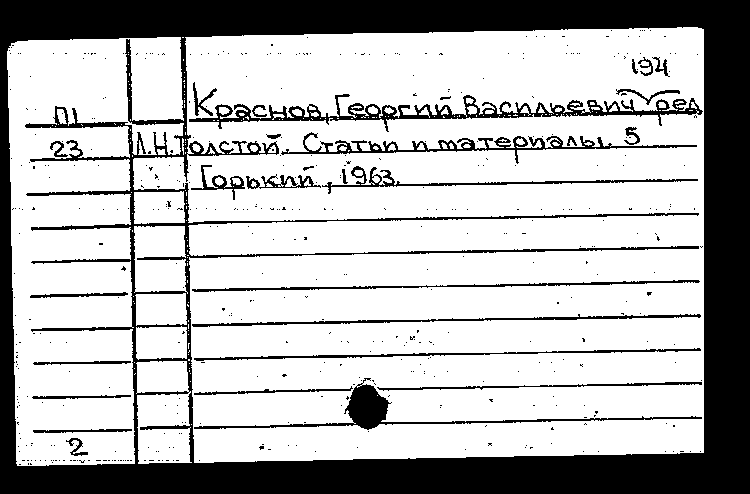 194
П1 Краснов, Георгий Васильевич ред
23 Л.Н.Толстой. Статьи и материалы. 5
Горький, 1963.
2